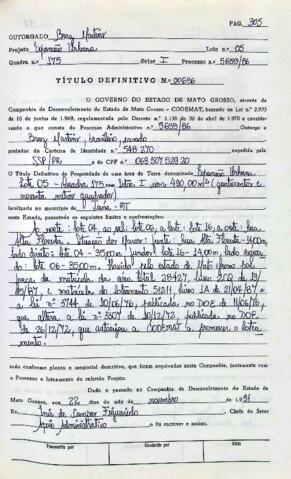 PAG. 305
OUTORGADO Braz Martins
Projeto Expansão Urbana Lote n.o 05
Quadra n.o 175 Setor I Processo n.o 5659/86
TÍTULO DEFINITIVO N.o 00696
O GOVERNO DO ESTADO DE MATO GROSSO, através da
Companhia de Desenvolvimento do Estado de Mato Grosso - CODEMAT, baseado na Lei n.o 2.933
de 10 de junho de 1969, regulamentada pelo Decreto n.o 1.138 de 30 de abril de 1970 e considerando
o que consta do Processo Administrativo n.o 5659/86 Outorga a
Braz Martins, brasileiro, casado
portador da Carteira de Identidade n.o 548 270 expedida pela
SSP/PR e do CPF n.o 069 507 529 20
O Título Definitivo de Propriedade de uma área de Terra denominada Expansão Urbana
Lote 05 - Quadra 175 - Setor I com 490,00 m2 (quatrocentos e
noventa metros quadrados)
localizada no município de - MT
neste Estado, possuindo os seguintes limites e confrontações:
Ao norte: lote 04, ao sul: lote 06, a leste: lote 16, a oeste: rua
Alta Floresta. frente: rua Alta Floresta - 14,00m,
lado direito: lote 04 - 35,00m, fundos: lote 16 - 14,00m, lado esquer-
do: lote 06 - 35,00m. Havido pelo estado de Mato Grosso
28427, livro
e matrícula do loteamento 51211, livro 1A de 21/04/87 e
a lei nº 3744 de 10/06/76, publicada no DOE 11/06/76,
que altera a lei nº 3307 de 18/12/72, publicada no DOE
de 26/12/72, que autoriza a CODEMAT a promover o lotea-
mento.
tudo conforme planta e memorial descritivo, que foram arquivados nesta Companhia, juntamente com
o Processo e loteamento do referido Projeto.
Dado e passado na Companhia de Desenvolvimento do Estado de
Mato Grosso, aos 22 dias do mês de novembro de 1991
Eu Inês de Campos Figueiredo Chefe do Setor
Apoio Administrativo o fiz escrever e assino.
Transcrito por Conferido por Visto